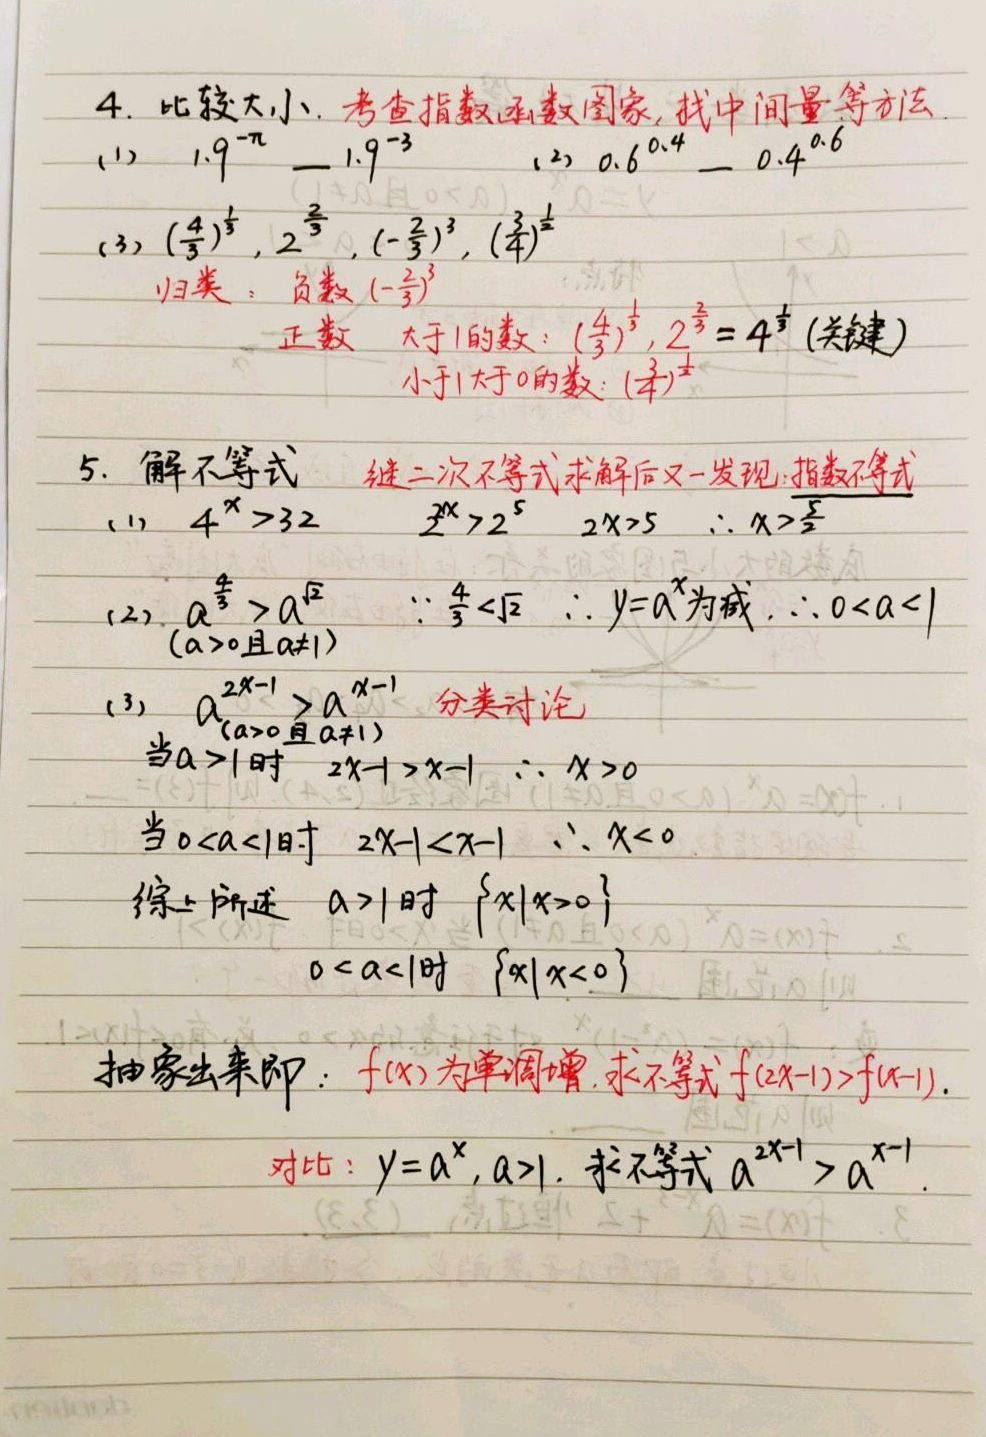 4. 比较大小. 考查指数函数图象,找中间量等方法.
(1) 1.9^{-π} __ 1.9^{-3} (2) 0.6^{0.4} __ 0.4^{0.6}
(3) (4/3)^{1/3}, 2^{2/3}, (-2/3)^3, (3/4)^{1/2}
归类: 负数 (-2/3)^3
正数 大于1的数: (4/3)^{1/3}, 2^{2/3} = 4^{1/3} (关键)
小于1大于0的数: (3/4)^{1/2}
5. 解不等式 继二次不等式求解后又一发现:指数不等式
(1) 4^x > 32 2^{2x} > 2^5 2x>5 ∴ x > 5/2
(2). a^{4/3} > a^{√2} ∵ 4/3 < √2 ∴ y=a^x为减. ∴ 0<a<1
(a>0且a≠1)
(3) a^{2x-1} > a^{x-1} 分类讨论
(a>0且a≠1)
当a>1时 2x-1>x-1 ∴ x>0
当0<a<1时 2x-1<x-1 ∴ x<0.
综上所述 a>1时 {x|x>0}
0<a<1时 {x|x<0}
抽象出来即: f(x)为单调增,求不等式f(2x-1)>f(x-1).
对比: y=a^x, a>1. 求不等式 a^{2x-1} > a^{x-1}.